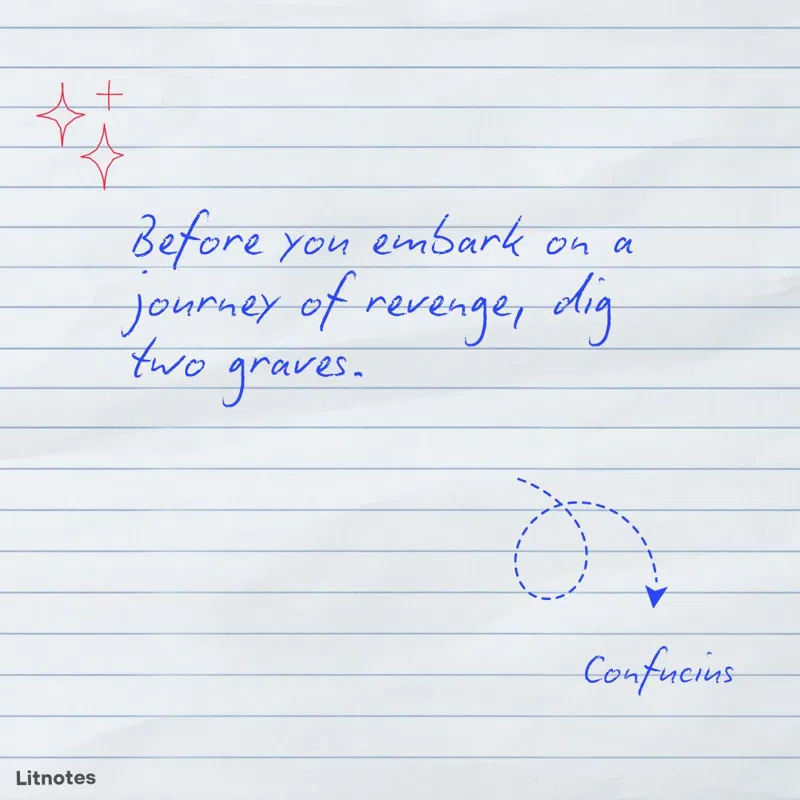 Before you embark on a
journey of revenge, dig
two graves.
Confucius
Litnotes